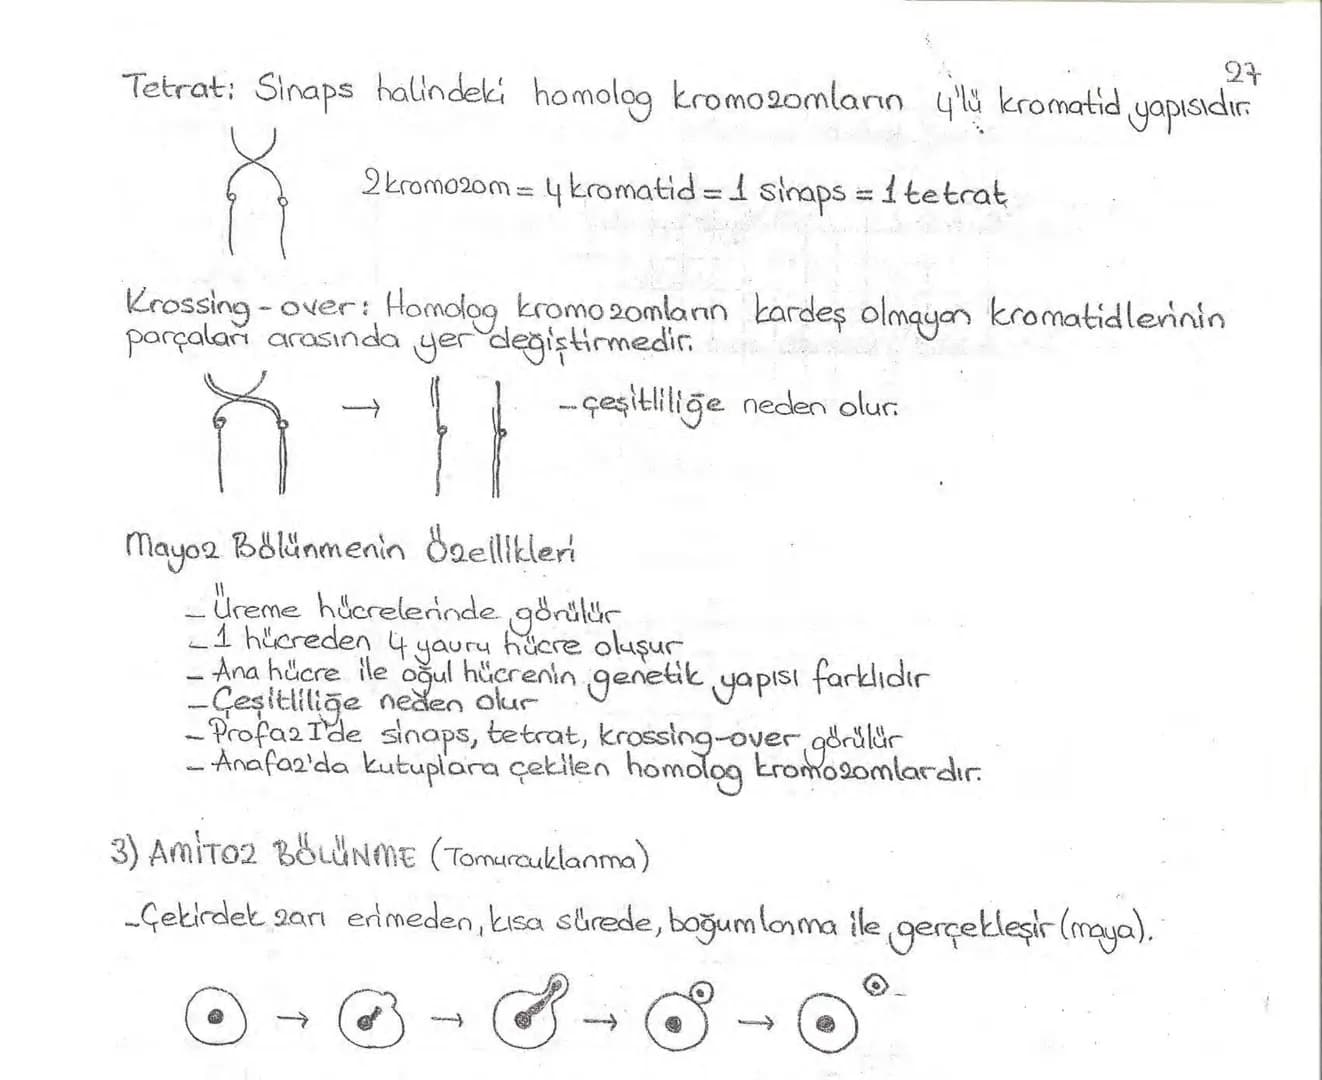 27
Tetrat: Sinaps halindeki homolog kromozomların 4'lü kromatid yapısıdır.
2 kromozom = 4 kromatid = 1 sinaps = 1 tetrat
Krossing-over: Homolog kromozomların kardeş olmayan kromatidlerinin
parçaları arasında yer değiştirmedir.
→
- çeşitliliğe neden olur.
Mayoz Bölünmenin Özellikleri
- Üreme hücrelerinde görülür
- 1 hücreden 4 yavru hücre oluşur
- Ana hücre ile oğul hücrenin genetik yapısı farklıdır
- Çeşitliliğe neden olur
- Profaz I'de sinaps, tetrat, krossing-over görülür
- Anafaz'da kutuplara çekilen homolog kromozomlardır.
3) AMİTOZ BÖLÜNME (Tomurcuklanma)
- Çekirdek zarı erimeden, kısa sürede, boğumlanma ile gerçekleşir (maya).
→ → → →